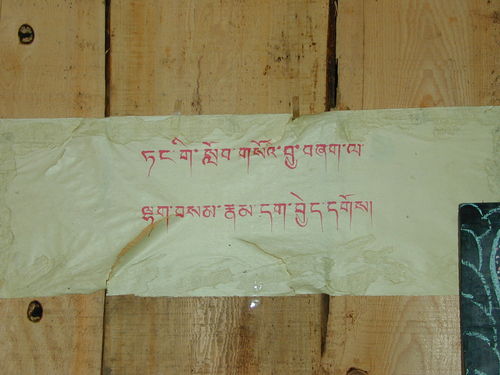 ཏང་གི་སློབ་གསོའི་བྱ་བཞག་ལ
ལྷག་བསམ་རྣམ་དག་བྱེད་དགོས།